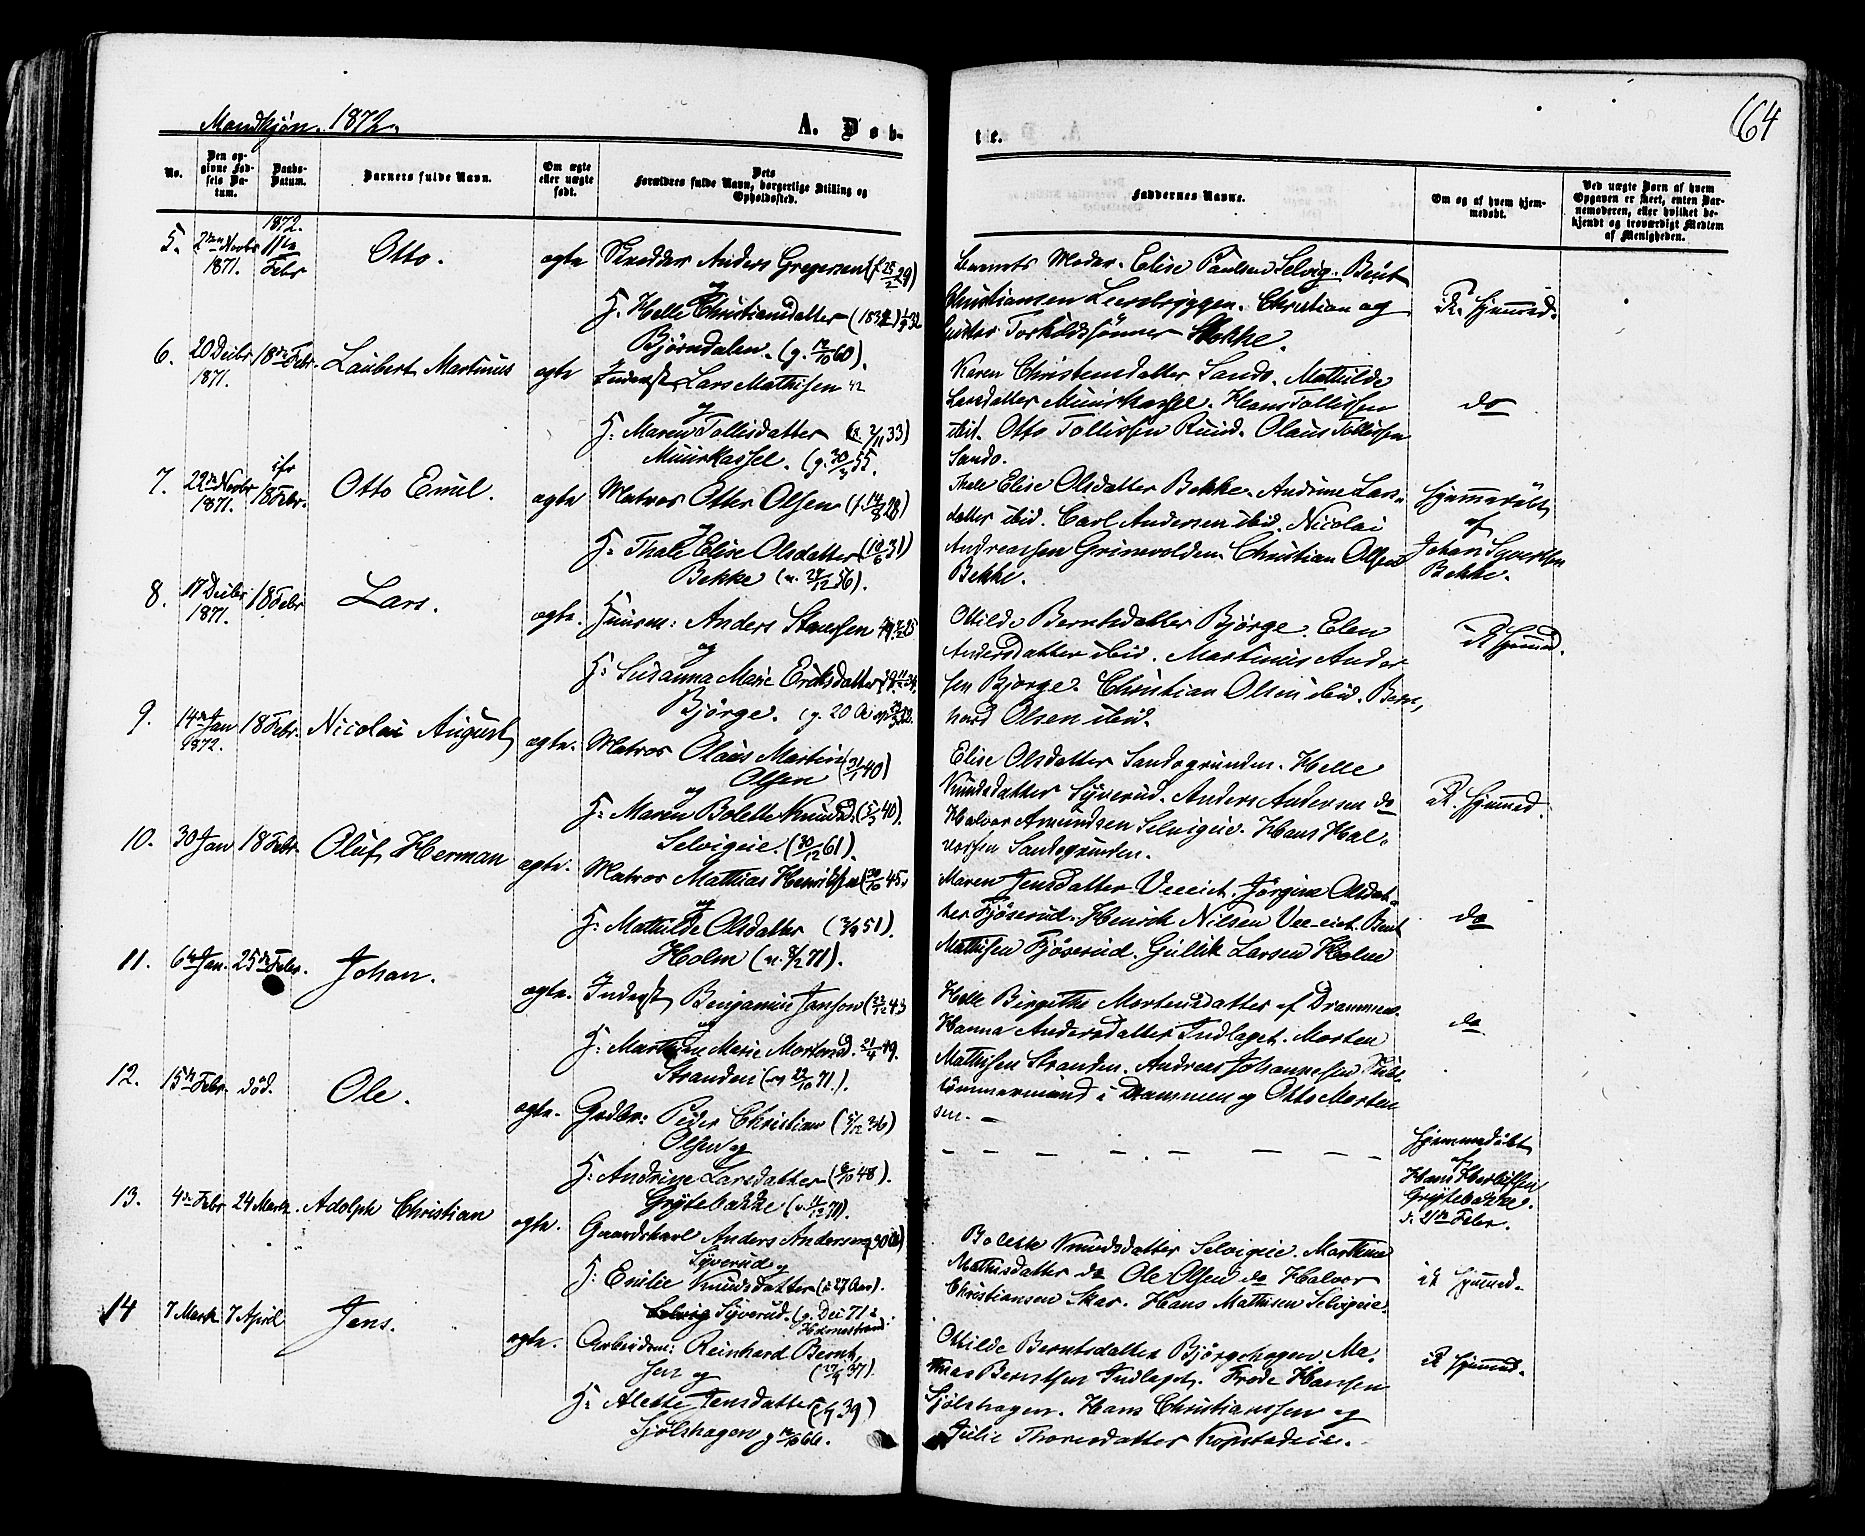 Mandkjøn. 1872.
A. Døb-
te.
64
No.
Den op-
givne Fød-
sels Da-
tum.
Daabs-
Datum.
Barnets fulde Navn.
Om ægte
eller uægte
født.
Dets
Forældres fulde Navn, borgerlige Stilling og
Opholdssted.
Faddernes Navne.
Om og af hvem hjem-
medøbt.
Ved uægte Børn af hvem
Opgaven er skeet, enten Bar-
nemoderen, eller hvilket be-
kjendt og troværdigt Medlem
af Menigheden.
5. 2den Novbr 1871. 1872. 11te Febr Otto. ægte
Skrædder Anders Gregersen (f 25/2 29)
og
H. Helle Christiansdatter
Bjørndalen. (g. 60).
Barnets Moder. Elise Paulsen Selvig. Bent
Christiansen Leersbryggen. Christian og
Torkildssønner Stokke.
ikke hjemmed.
6. 20 Decbr 1871. 18de Febr. Laubert Martinus ægte
Inderst Lars Mathisen 42
og
H: Maren Tollisdatter (2/11 33)
Muurkassel. (g. 30/3 55.
Karen Christensdatter Sando. Mathilde
Larsdatter Muurkassel. Hans Tollissen
ibit. Otto Tollissen Ruud. Olaus Tollissen
Sando.
do
7. 22de Novbr 1871. 18 Febr. Otto Emil. ægte
Matros Otter Olsen (f. 14/8 28)
og
H: Thale Elise Olsdatter (10/6 31)
Bekke (v. 27/12 56).
Thale Elise Olsdatter Bekke. Andrine Lars-
datter ibid. Carl Andersen ibid. Nicolai
Andreassen Grinevolden. Christian Olsen
Bekke.
hjemmedøbt
af
Johan Syvertsen
Bekke.
8. 17 Decbr 1871. 18 Febr Lars. ægte.
Huusm: Anders
og
H: Susanna Marie Eriksdatter
Bjørge. (g. 20
Otilde Berntsdatter Bjørge. Elen
Andersdatter ibid. Martinus Ander
sen Bjørge. Christian Olsen ibid. Bern,
hard Olsen ibid.
ikke hjemmed.
9. 14de Jan 1872. 18 Febr. Nicolai August ægte.
Matros Olaus Martin (31/1 40)
Olsen
og
H: Maren Bolette Knudsd. (5/5 40).
Selvigeie. (30/12 61).
Elise Olsdatter Sandogrunden. Helle
Knudsdatter Syverud. Anders Andersen do
Halvor Amundsen Selvigeie. Hans Hal-
vorsen Sandogrunden.
ikke hjemmed.
10. 30 Jan 18 Febr. Oluf Herman ægte.
Matros Mathias Henriksen (30/10 45.
og
H: Mathilde Olsdatter (3/9 51).
Holm (v. 8/2 71).
Maren Jensdatter Veeeiet. Jørgine Olsdat-
ter Fjøserud. Henrik Nilsen Vee-eiet. Bent
Mathisen Fjøserud. Gullik Larsen Holm
do
11. 6te Jan. 25de Febr. Johan. ægte.
Inderst Benjamin Janson (43
og
H: Marthine Marie Mortensd. 21/4 49.
Stranden (v 22/10 71.).
Helle Birgethe Mortensdatter af Drammen.
Hanna Andersdatter Indlaget. Morten
Mathisen Stranden. Andreas Johannesen
tømmermand i Drammen og Otto Morten
sen. —
do
12. 15de Febr. død. Ole. ægte.
Grdbr: Peder Christian (5/12 36)
Olsen og
H: Andrine Larsdatter (9/10 48).
Grytebakke (v. 71).
— — — — — — —
hjemmedøbt
af
Grytebakke.
d. 21de Febr.
13. 4de Febr 24 Marts. Adolph Christian ægte.
Gaardskarl Anders Andersen 30
Syverud og
H: Emilie Knudsdatter (27 Aar).
Syverud. (g. Dec 71 i
Holmestrand.
Bolette Knudsdatter Selvigeie. Marthine
Mathisdatter do Ole Olsen do Halvor
Christiansen Skar. Hans Mathisen Selvigeie.
ik hjemmed.
14 7 Marts. 7 April Jens. ægte.
Arbeidsm: Reinhard Bernt,
sen og (27/9 37)
H: Alette Jensdatter
Sjølshagen
Otilde Berntsdatter Bjørgehagen. Ma-
thias Berntsen Indlaget. Frode Hansen
Sjølshagen. Hans Christianssen og
Julie Thoresdatter Kopstadeie.
ik hjemmed.